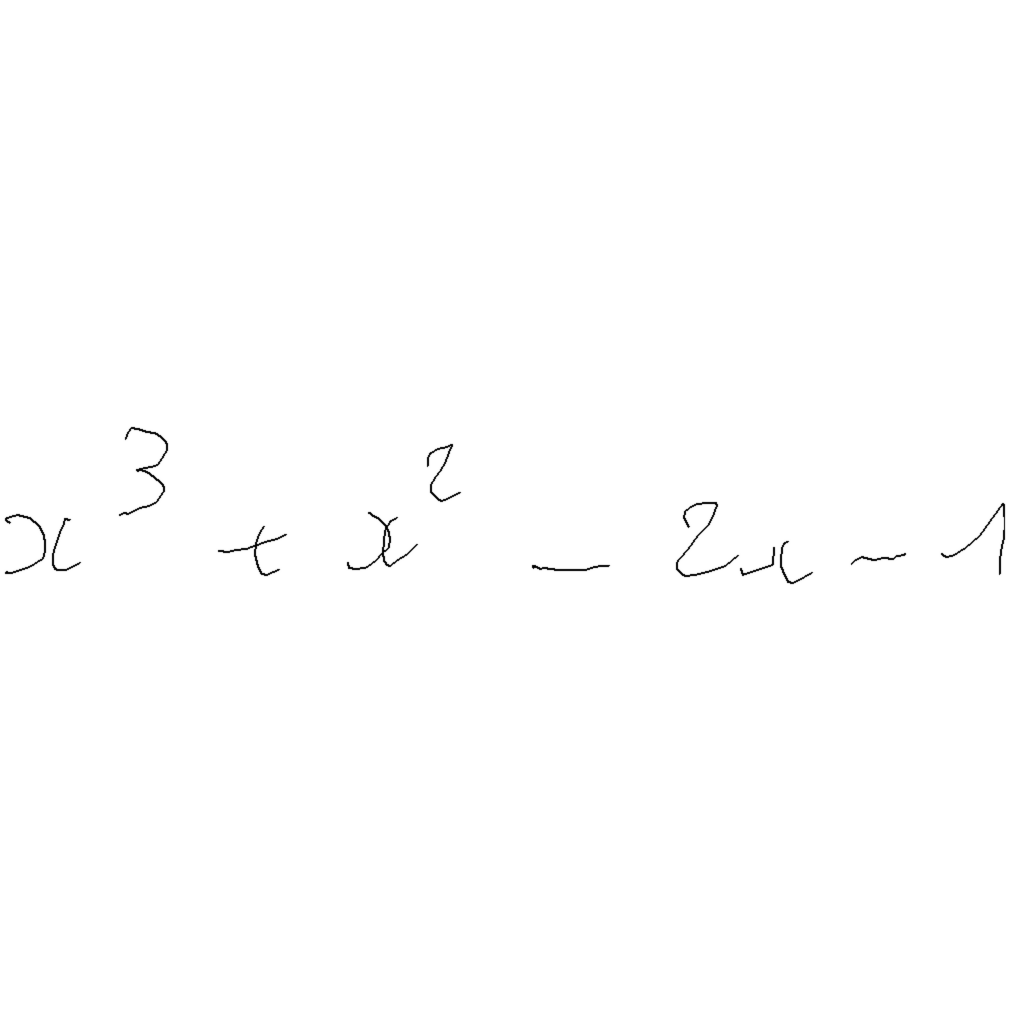 x³ + x² - 2x - 1